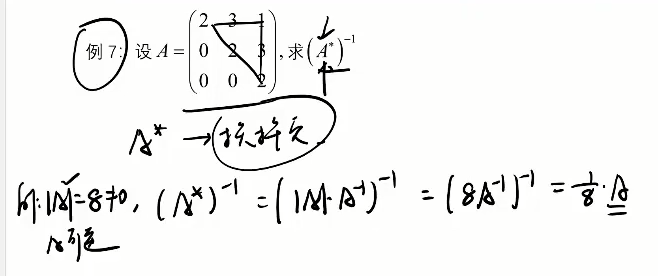 例7: 设 A = (2 3 1
0 2 3
0 0 2), 求(A*)⁻¹
A* → 找择元
解: |A| = 8 ≠ 0, (A*)⁻¹ = (|A|·A⁻¹)⁻¹ = (8A⁻¹)⁻¹ = 1/8·A
A可逆